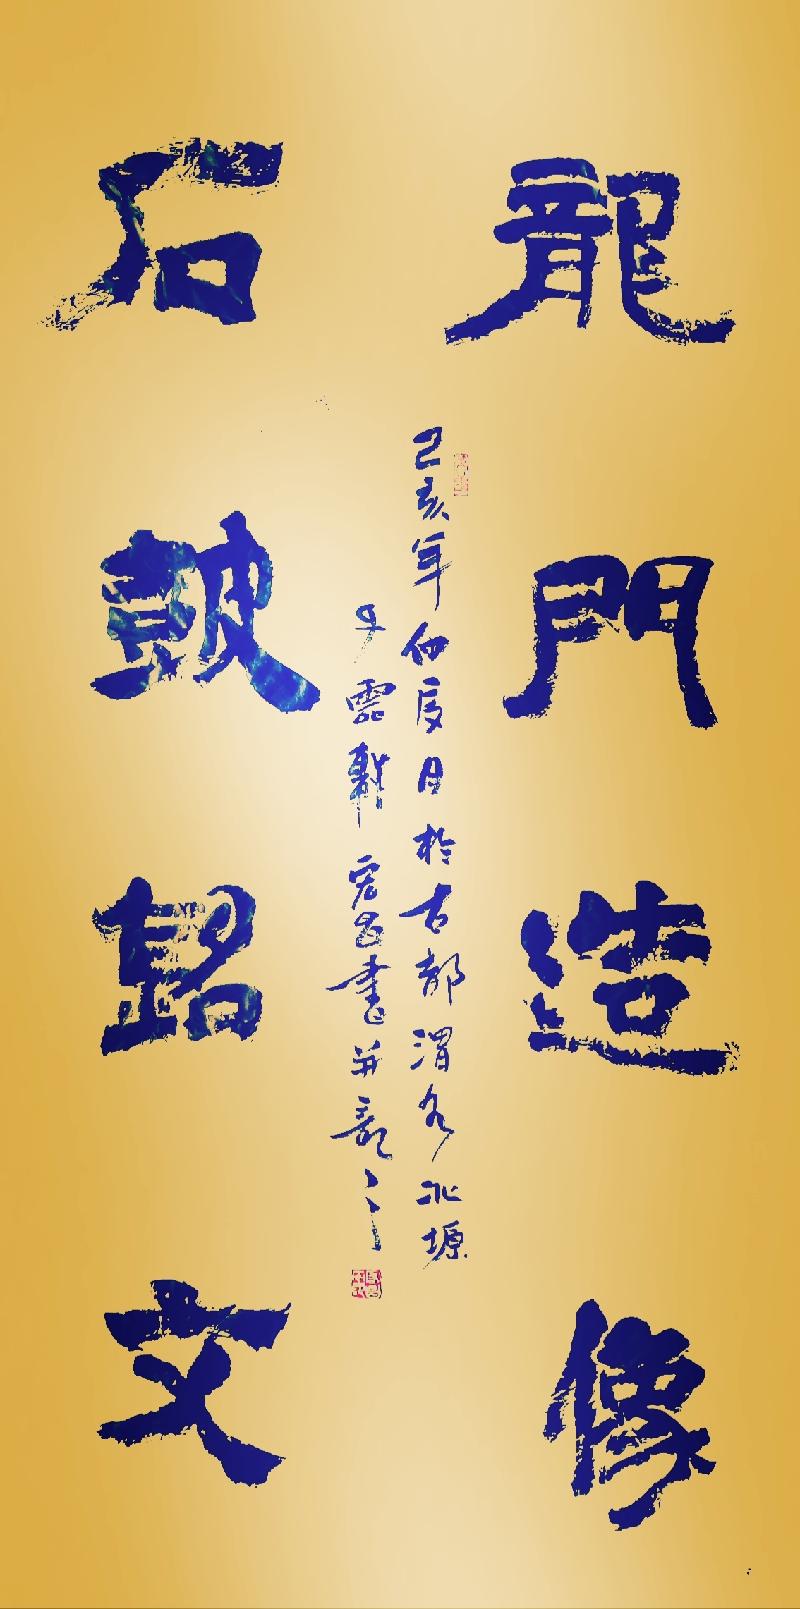 龍門造像
己亥年仲夏月於古都渭水北塬
軒宏書并記
石皷銘文